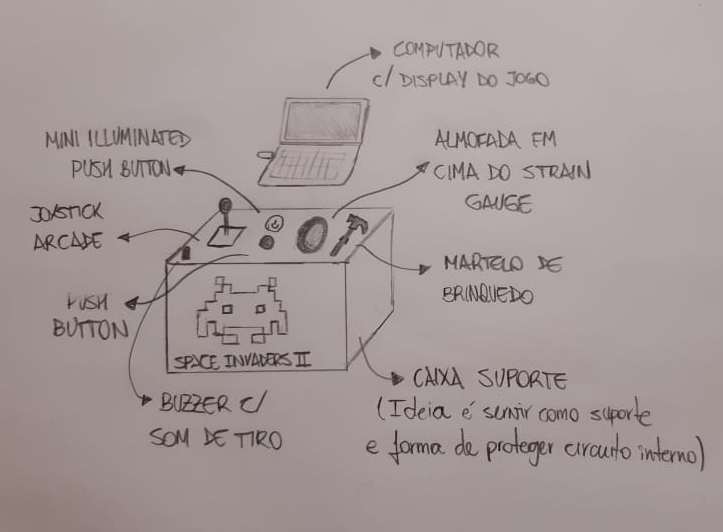 COMPUTADOR
c/ DISPLAY DO JOGO
MINI ILLUMINATED
PUSH BUTTON
ALMOFADA EM
CIMA DO STRAIN
GAUGE
JOYSTICK
ARCADE
MARTELO DE
BRINQUEDO
PUSH
BUTTON
SPACE INVADERS II
CAIXA SUPORTE
(Ideia é servir como suporte
e forma de proteger circuito interno)
BUZZER C/
SOM DE TIRO